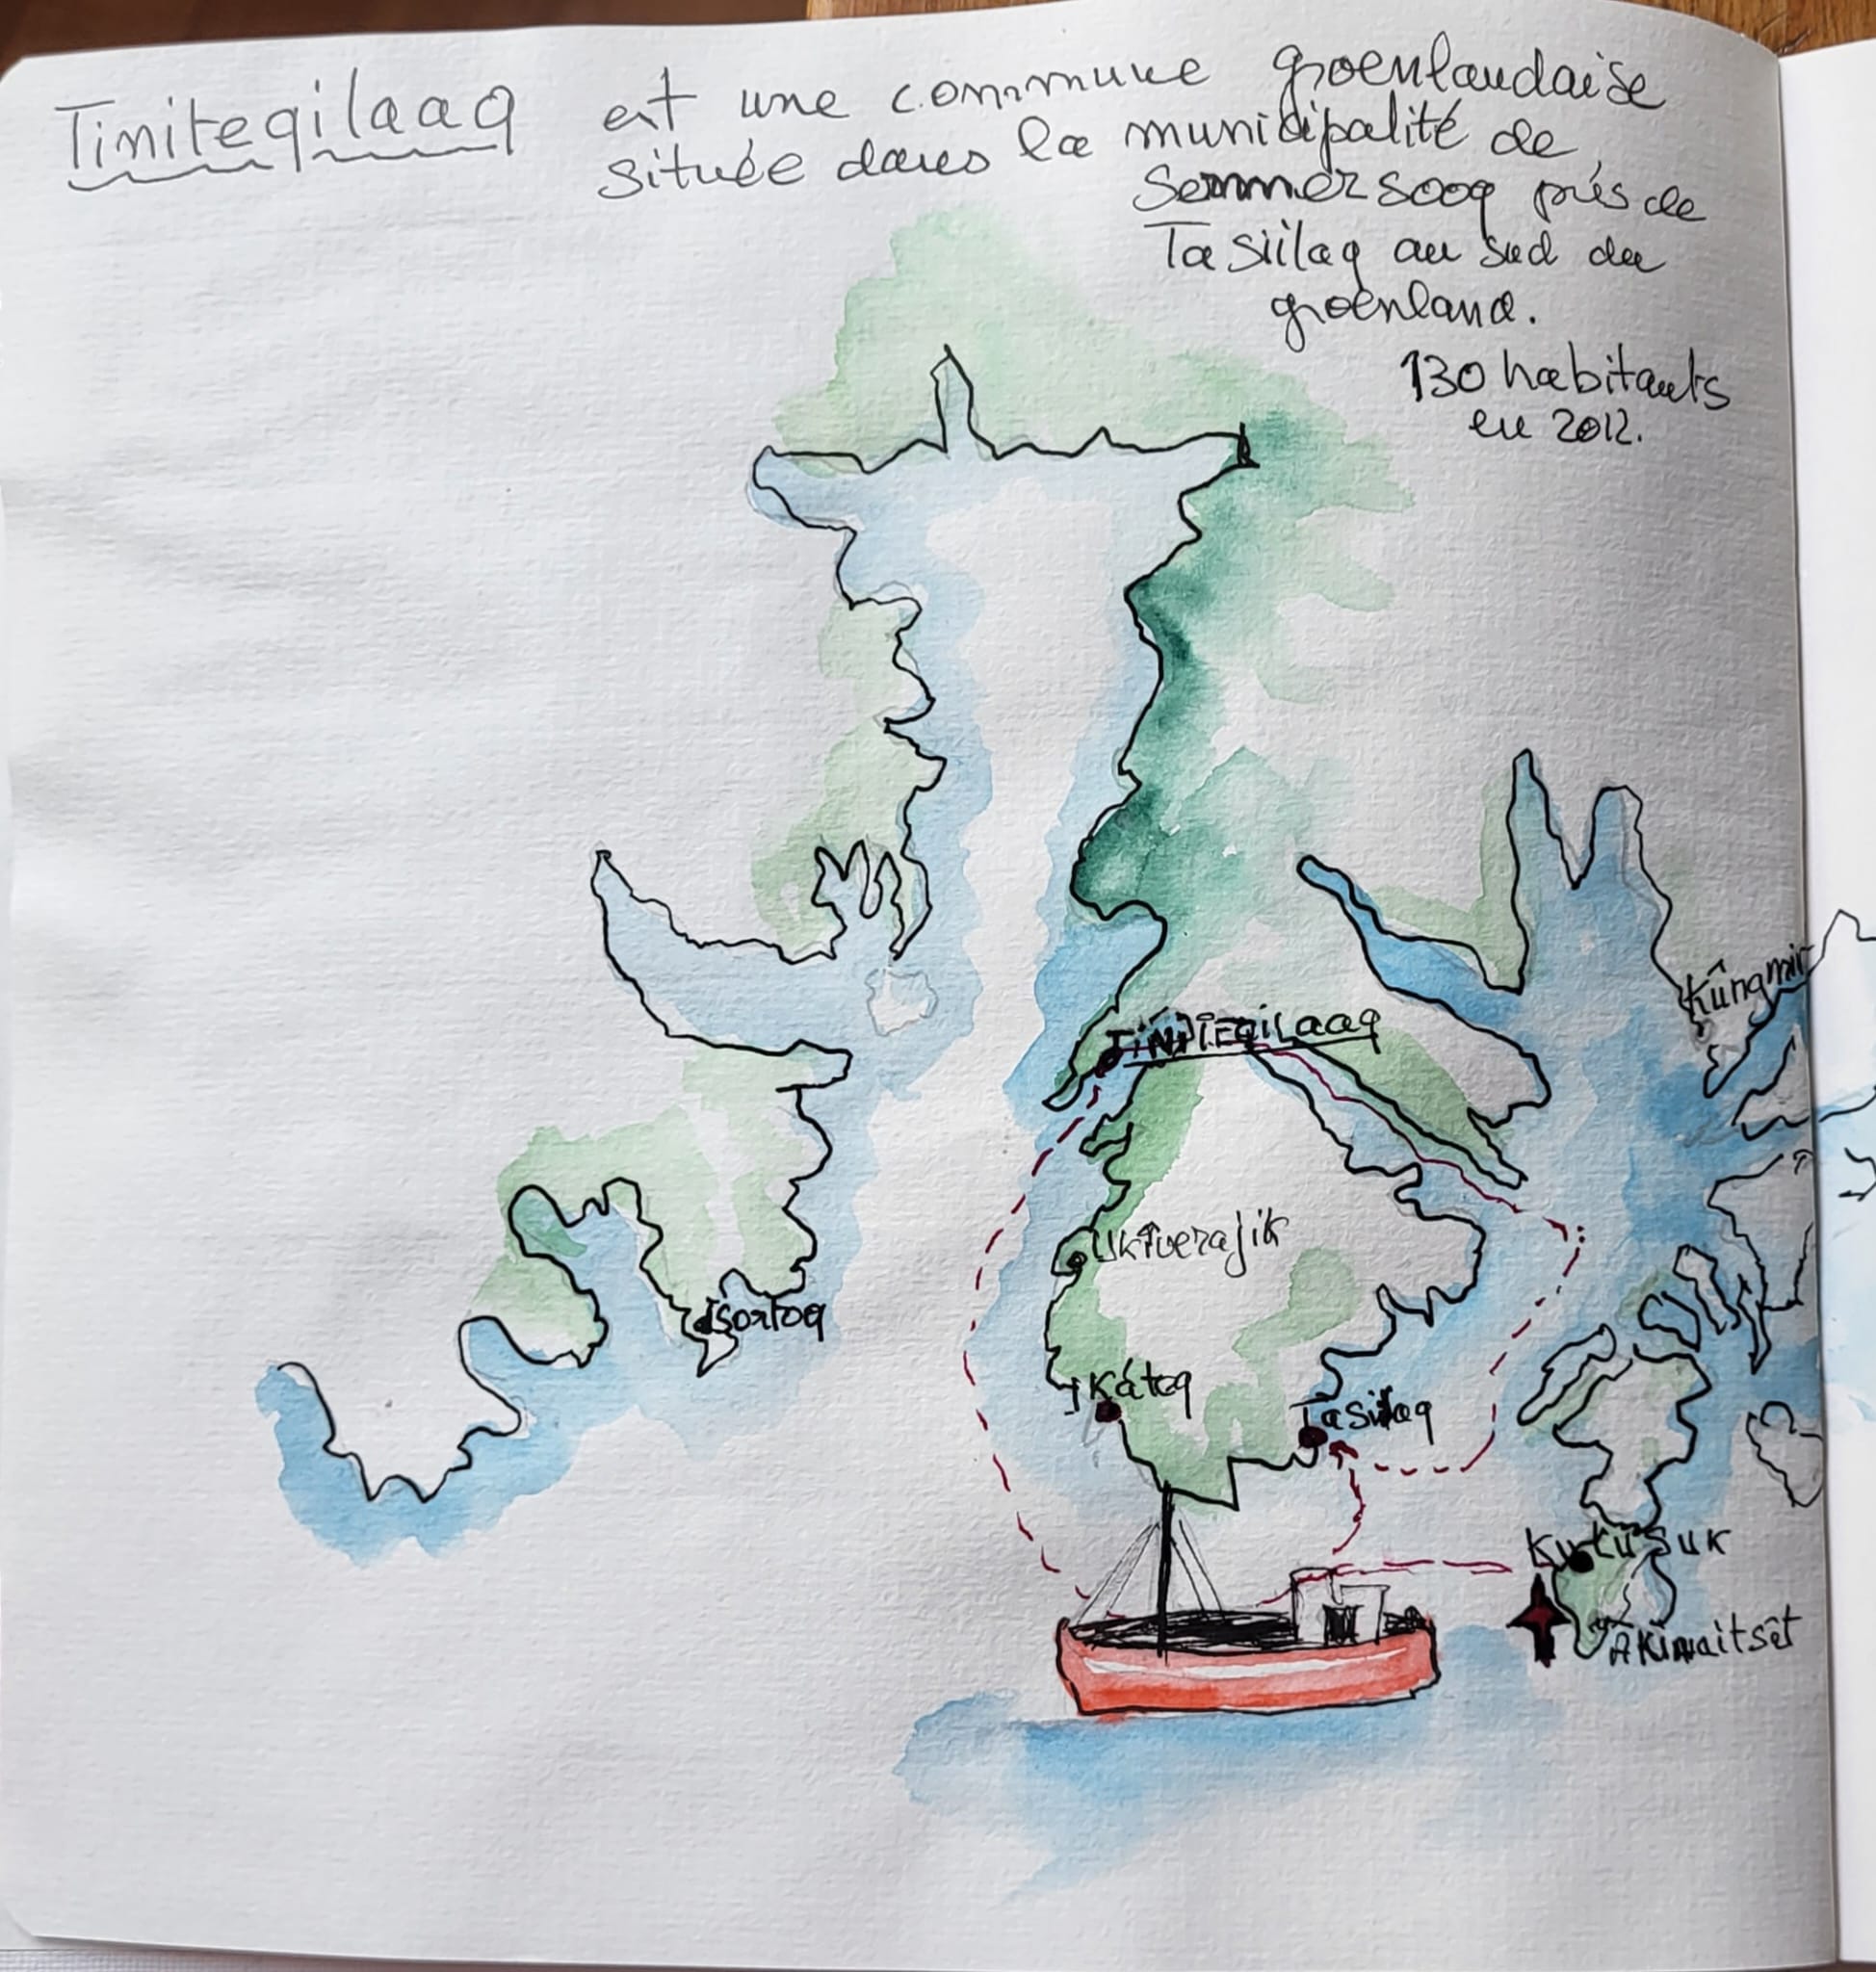 Tiniteqilaaq est une commune groenlandaise
située dans la municipalité de
Sermersooq près de
Tasiilaq au sud du
groenland.
130 habitants
en 2012.
Kûngmiit
TiNiTEQiLaaq
Ukîverajik
Isortoq
Kâteq
Tasiilaq
Kulusuk
Akinaitsêt